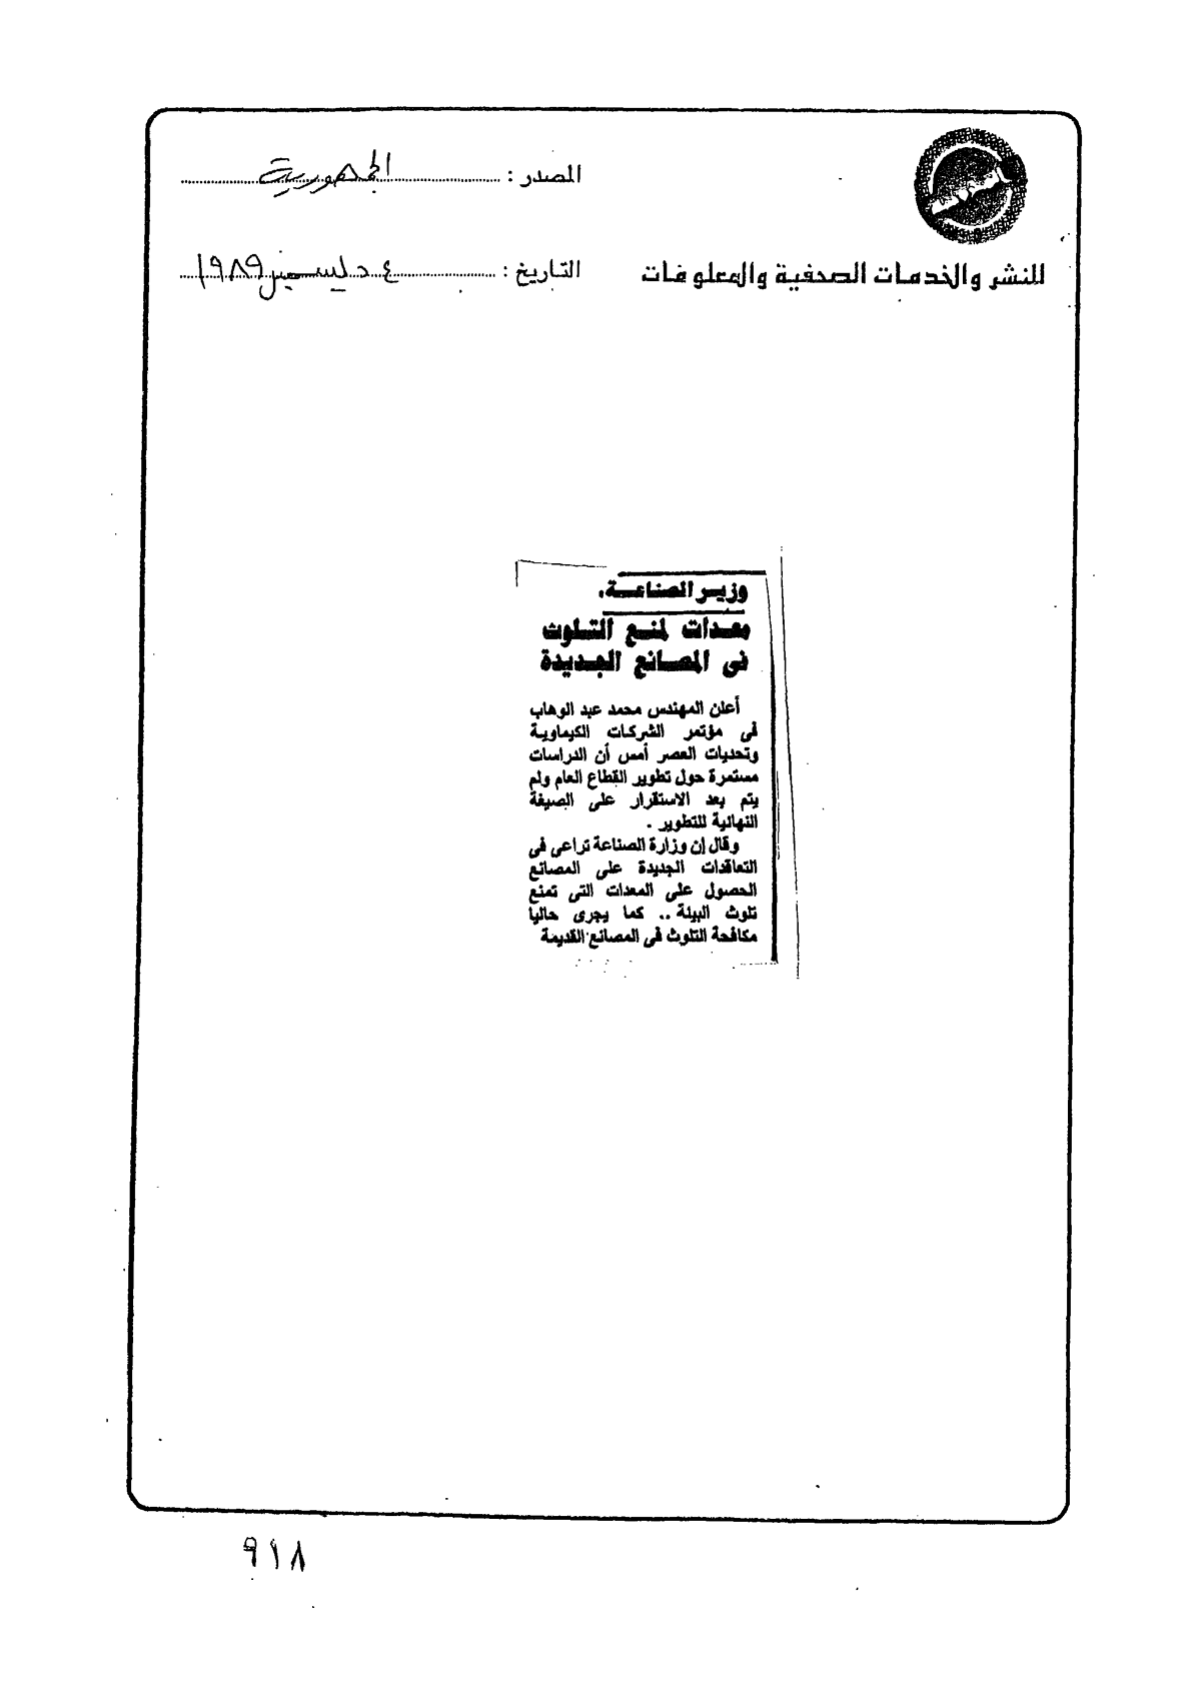 المصدر : الجمهورية
للنشر والخدمات الصحفية والمعلومات
التاريخ : ٤ ديسمبر ١٩٨٩
وزير الصناعة:
معدات لمنع التلوث
فى المصانع الجديدة
أعلن المهندس محمد عبد الوهاب
فى مؤتمر الشركات الكيماوية
وتحديات العصر أمس أن الدراسات
مستمرة حول تطوير القطاع العام ولم
يتم بعد الاستقرار على الصيغة
النهائية للتطوير .
وقال إن وزارة الصناعة تراعى فى
التعاقدات الجديدة على المصانع
الحصول على المعدات التى تمنع
تلوث البيئة .. كما يجرى حاليا
مكافحة التلوث فى المصانع القديمة
٩١٨